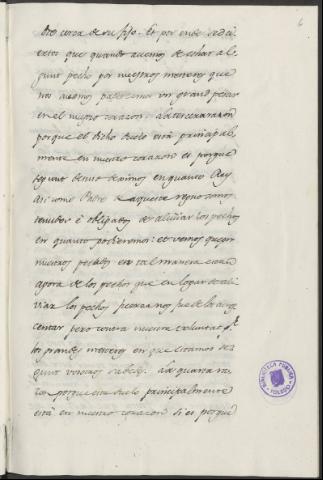 6
otro cerca de su fijo. Et por ende sed ci
ertos que quando avemos de echar al
gunt pecho por nuestros menesteres que
nos avemos parte como con grand pesar
en el nuestro corazon. La tercera razon
porque el dicho duelo está principal
mente en nuestro corazon es porque
segunt Deviso de vimos en quanto Rey
asi como Padre de aqueste regno somos
tenudos é obligados de aliviar los pechos
en quanto podieremos: et vemos que por
nuestros pecados en tal manera estan
agora de los fechos que en logar de ali
viar los pechos forzanos fue de los acre
centar pero contra nuestra voluntat por
los grandes menesteres en que estamos se
gunt vosotros sabedes. La quarta ra
zon porque este duelo principalmente
está en nuestro corazon si es porque
BIBLIOTECA PUBLICA
TOLEDO